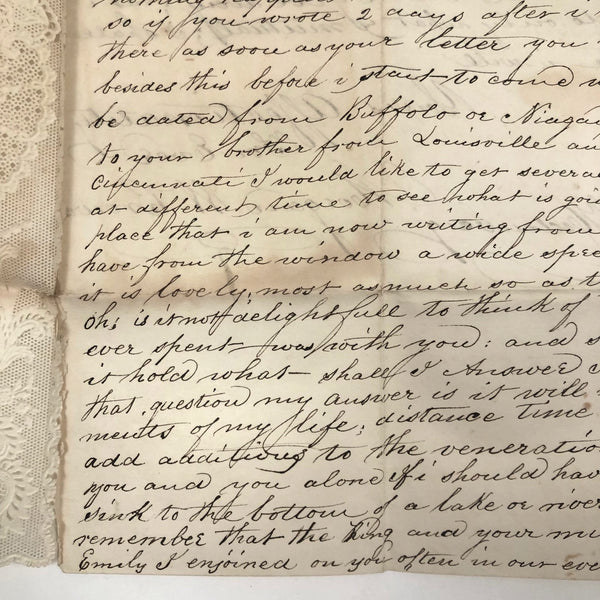 so if you wrote 2 days after i
there as soon as your letter you
besides this before i start to come
be dated from Buffolo or Niaga
to your brother from Louisville an
Cincinnati I would like to get severa
at different time to see what is goi
place that i am now writing from
have from the window a wide spee
it is lovely, most as much so as t
Oh; is it not delightfull to think of
ever spent was with you: and s
it hold what shall I Answer
that question my answer is it will
ments of my life; distance time
add additions to the veneratio
you and you alone If i should hav
sink to the bottom of a lake or river
remember that the King and your mu
Emily I enjoined on you often in our eve